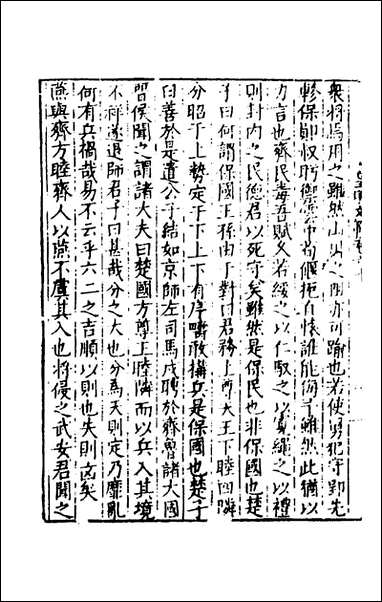 衆將爲用之雖然山川之阻亦可踰也若使勇犯守郢先
軫保鄖収爭御雲中荀偃拒自懐誰能侮予雖然此猶以
力言也齊民毒吾賦久若綏之以仁馭之以寛繩之以禮
則封内之民德君以死守矣雖然是保民也非保國也楚
子曰何謂保國王孫由于對曰君務上尊天王下睦四隣
分昭于上勢定于下上下有序疇敢搆兵是保國也楚子
曰善於是遣公子結如京師左司馬戍聘於齊魯諸大國
晋侯聞之謂諸大夫曰楚國方尊王睦隣而以兵入其境
不祥遂退師君子曰甚哉分之大也分爲天則定乃靡亂
何有兵禍哉易不云乎六二之吉順以則也失則凶矣
燕與齊方睦齊人以燕不虞其入也將侵之武安君聞之